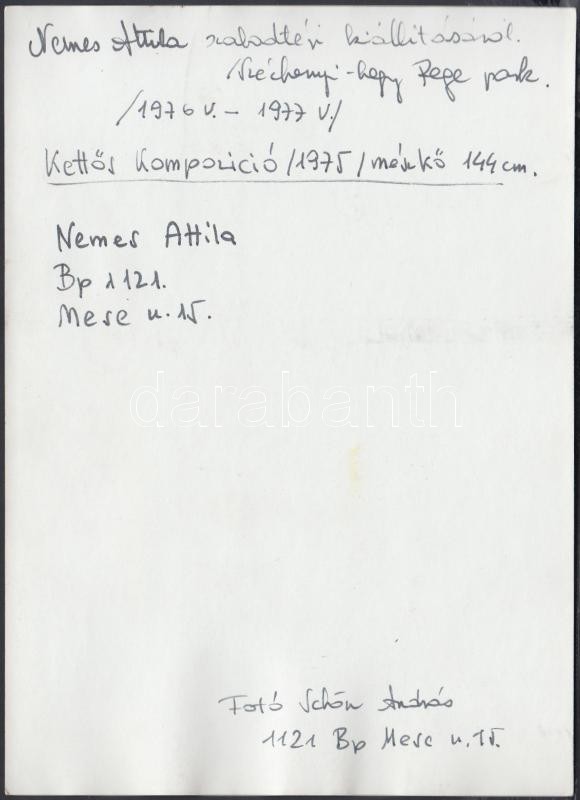 Nemes Attila szabadtéri kiállításáról.
/Széchenyi-hegy Rege park.
/1976 V. - 1977 V./
Kettős Kompozició /1975/ mészkő 144 cm.
Nemes Attila
Bp 1121.
Mese u. 15.
darabanth
Fotó Schön András
1121 Bp Mese u. 15.